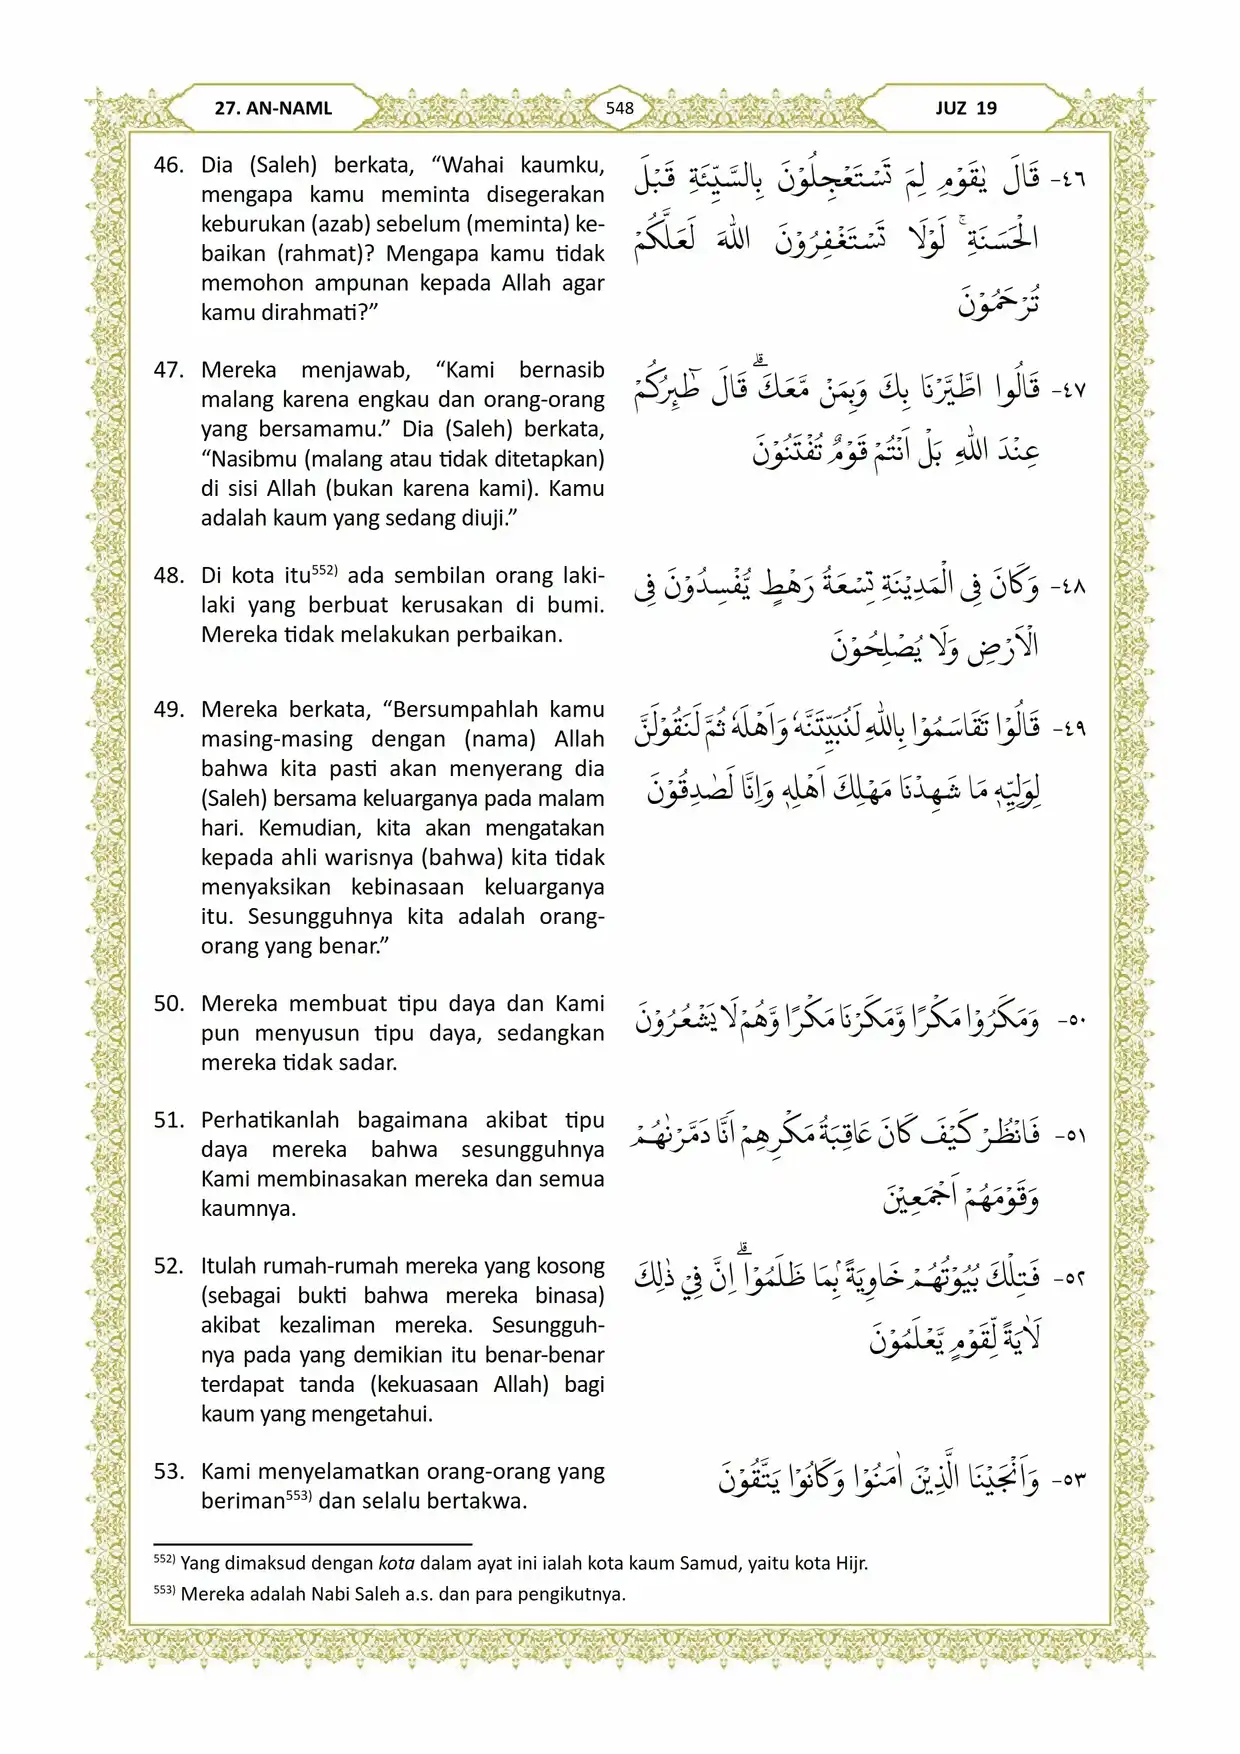 27. AN-NAML
548
JUZ 19
46. Dia (Saleh) berkata, “Wahai kaumku,
mengapa kamu meminta disegerakan
keburukan (azab) sebelum (meminta) ke-
baikan (rahmat)? Mengapa kamu tidak
memohon ampunan kepada Allah agar
kamu dirahmati?”
٤٦- قَالَ يٰقَوْمِ لِمَ تَسْتَعْجِلُوْنَ بِالسَّيِّئَةِ قَبْلَ
الْحَسَنَةِۚ لَوْلَا تَسْتَغْفِرُوْنَ اللّٰهَ لَعَلَّكُمْ
تُرْحَمُوْنَ
47. Mereka menjawab, “Kami bernasib
malang karena engkau dan orang-orang
yang bersamamu.” Dia (Saleh) berkata,
“Nasibmu (malang atau tidak ditetapkan)
di sisi Allah (bukan karena kami). Kamu
adalah kaum yang sedang diuji.”
٤٧- قَالُوا اطَّيَّرْنَا بِكَ وَبِمَنْ مَّعَكَۗ قَالَ طٰۤىِٕرُكُمْ
عِنْدَ اللّٰهِ بَلْ اَنْتُمْ قَوْمٌ تُفْتَنُوْنَ
48. Di kota itu552) ada sembilan orang laki-
laki yang berbuat kerusakan di bumi.
Mereka tidak melakukan perbaikan.
٤٨- وَكَانَ فِى الْمَدِيْنَةِ تِسْعَةُ رَهْطٍ يُّفْسِدُوْنَ فِى
الْاَرْضِ وَلَا يُصْلِحُوْنَ
49. Mereka berkata, “Bersumpahlah kamu
masing-masing dengan (nama) Allah
bahwa kita pasti akan menyerang dia
(Saleh) bersama keluarganya pada malam
hari. Kemudian, kita akan mengatakan
kepada ahli warisnya (bahwa) kita tidak
menyaksikan kebinasaan keluarganya
itu. Sesungguhnya kita adalah orang-
orang yang benar.”
٤٩- قَالُوْا تَقَاسَمُوْا بِاللّٰهِ لَنُبَيِّتَنَّهٗ وَاَهْلَهٗ ثُمَّ لَنَقُوْلَنَّ
لِوَلِيِّهٖ مَا شَهِدْنَا مَهْلِكَ اَهْلِهٖ وَاِنَّا لَصٰدِقُوْنَ
50. Mereka membuat tipu daya dan Kami
pun menyusun tipu daya, sedangkan
mereka tidak sadar.
٥٠- وَمَكَرُوْا مَكْرًا وَّمَكَرْنَا مَكْرًا وَّهُمْ لَا يَشْعُرُوْنَ
51. Perhatikanlah bagaimana akibat tipu
daya mereka bahwa sesungguhnya
Kami membinasakan mereka dan semua
kaumnya.
٥١- فَانْظُرْ كَيْفَ كَانَ عَاقِبَةُ مَكْرِهِمْ اَنَّا دَمَّرْنٰهُمْ
وَقَوْمَهُمْ اَجْمَعِيْنَ
52. Itulah rumah-rumah mereka yang kosong
(sebagai bukti bahwa mereka binasa)
akibat kezaliman mereka. Sesungguh-
nya pada yang demikian itu benar-benar
terdapat tanda (kekuasaan Allah) bagi
kaum yang mengetahui.
٥٢- فَتِلْكَ بُيُوْتُهُمْ خَاوِيَةً ۢبِمَا ظَلَمُوْاۗ اِنَّ فِيْ ذٰلِكَ
لَاٰيَةً لِّقَوْمٍ يَّعْلَمُوْنَ
53. Kami menyelamatkan orang-orang yang
beriman553) dan selalu bertakwa.
٥٣- وَاَنْجَيْنَا الَّذِيْنَ اٰمَنُوْا وَكَانُوْا يَتَّقُوْنَ
552) Yang dimaksud dengan kota dalam ayat ini ialah kota kaum Samud, yaitu kota Hijr.
553) Mereka adalah Nabi Saleh a.s. dan para pengikutnya.